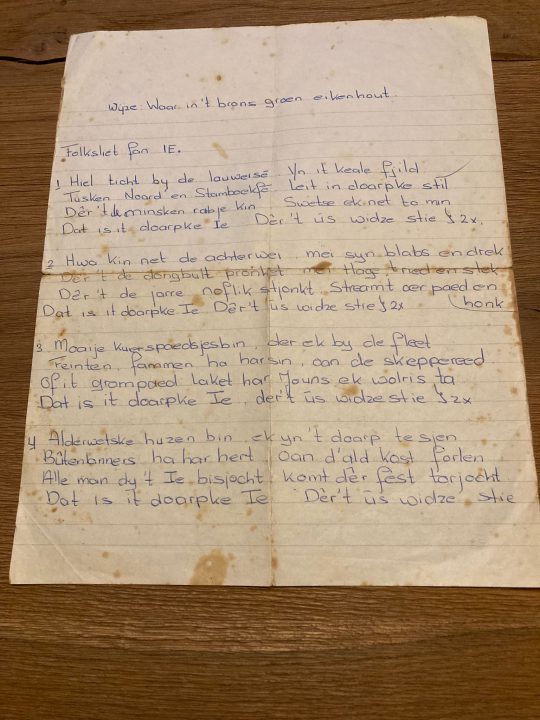 Wijze: Waar in 't brons groen eikenhout.
Folksliet fan IE.
1 Hiel ticht by de lauwerseé Yn it keale fjild
Tusken Noard en Stamboekfé Leit in doarpke stil
Dêr't de minsken rabje kin Swetse ek net to min
Dat is it doarpke Ie Dêr't ús widze stie } 2x.
2 Hwa kin net de achterwei mei syn blabs en drek
Dêr't de dongbult pronket mei flage
Dêr't de jarre noflik stjonkt Streamt oer paed en
Dat is it doarpke Ie Dêr't ús widze stie } 2x honk
3 Moaije kuerspaedsjes bin, der ek by de fleet
Feinten, fammen ha har sin, oan de skeppereed
Of it grompaed laket har Jouns ek wolris ta
Dat is it doarpke Ie, der't ús widze stie } 2x
4 Alderwetske huzen bin, ek yn 't doarp te sjen
Bûtenbinners ha har hert oan d'ald kost forlen
Alle man dy 't Ie bisjocht komt dêr fest torjocht
Dat is it doarpke Ie Dêr't ús widze stie